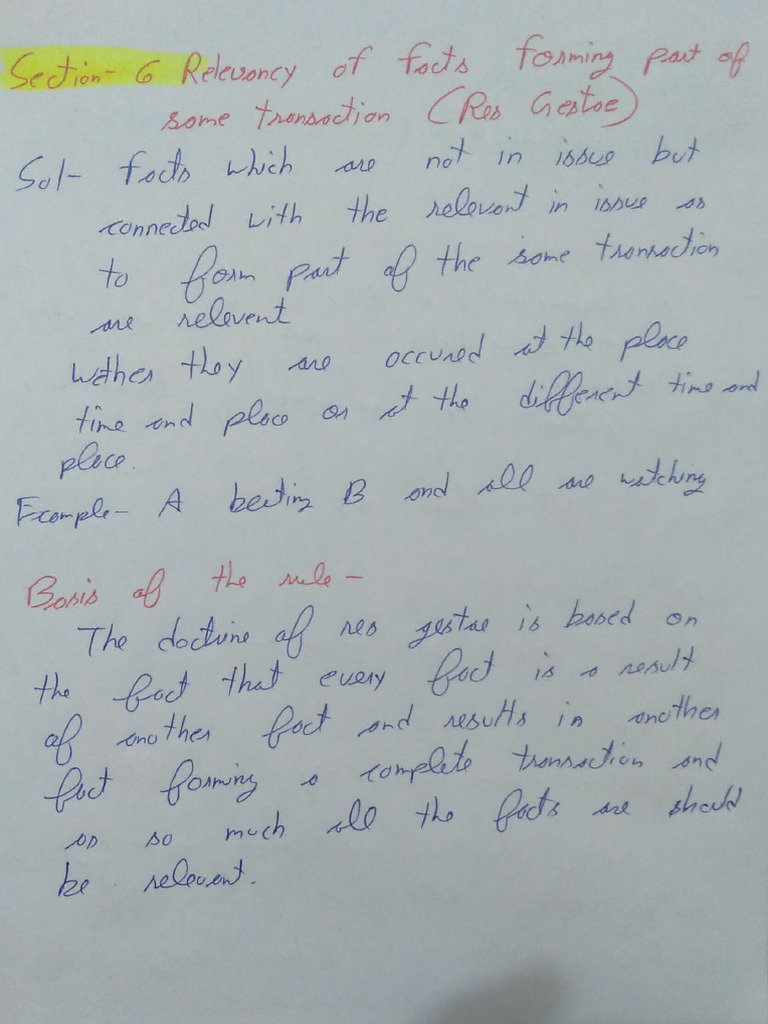 Section- 6 Relevancy of facts forming part of
same transaction (Res Gestae)
Sol- facts which are not in issue but
connected with the relevant in issue as
to form part of the same transaction
are relevent
Wether they are occured at the place
time and place or at the different time and
place.
Example- A beating B and all are watching
Basis of the rule-
The doctrine of res gestae is based on
the fact that every fact is a result
of another fact and results in another
fact forming a complete transaction and
as so much all the facts are should
be relevant.